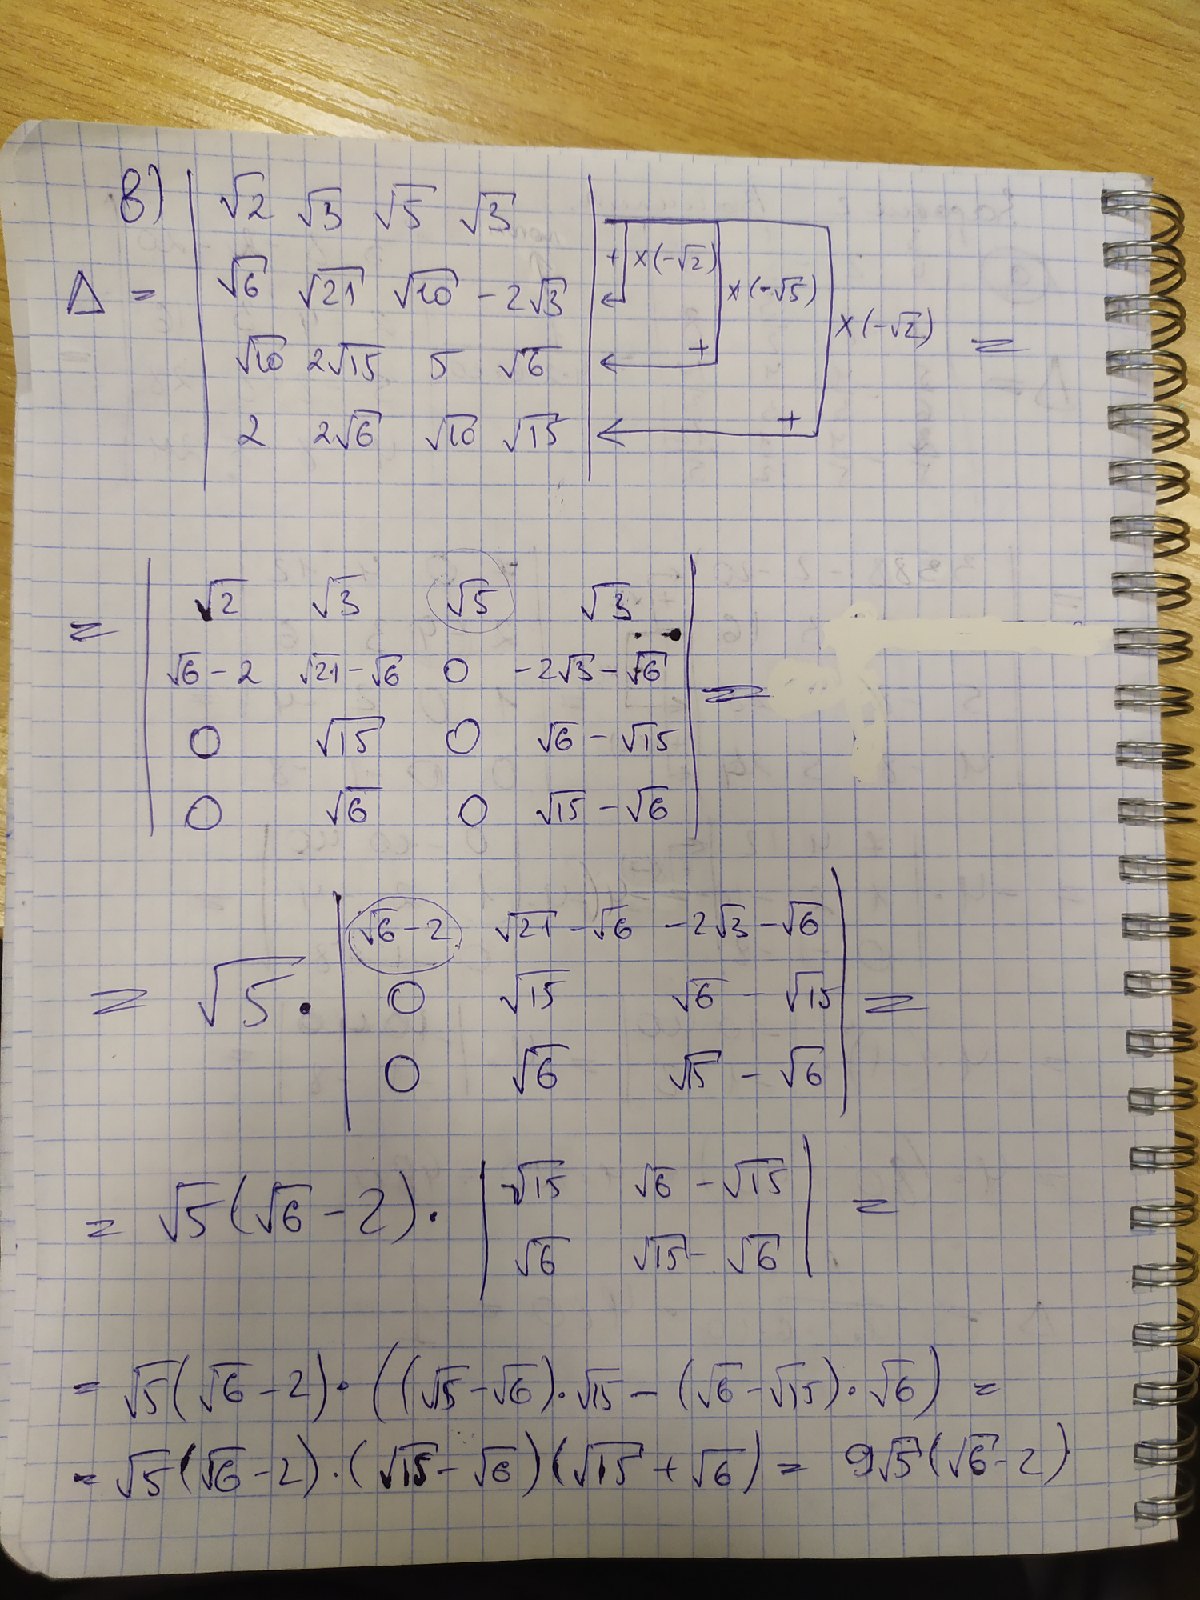 в) | √2 √3 √5 √3 |
Δ = | √6 √21 √10 -2√3 | + ×(-√2) ×(-√5) ×(-√2) =
| √10 2√15 5 √6 | +
| 2 2√6 √10 √15 | +
| √2 √3 √5 √3 |
= | √6-2 √21-√6 0 -2√3-√6 | =
| 0 √15 0 √6-√15 |
| 0 √6 0 √15-√6 |
| √6-2 √21-√6 -2√3-√6 |
= √5 · | 0 √15 √6-√15 | =
| 0 √6 √15-√6 |
= √5(√6-2) · | √15 √6-√15 | =
| √6 √15-√6 |
= √5(√6-2)·((√15-√6)·√15-(√6-√15)·√6) =
= √5(√6-2)·(√15-√6)(√15+√6) = 9√5(√6-2)